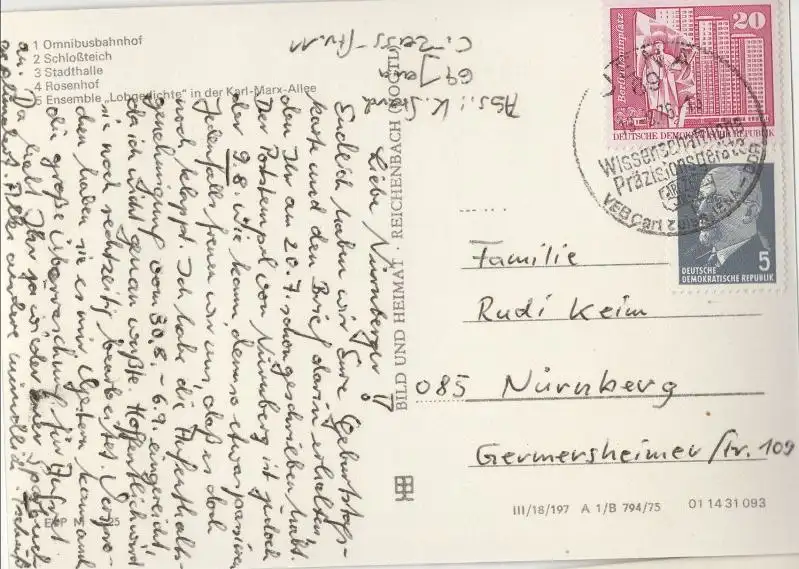 1 Omnibusbahnhof
2 Schloßteich
3 Stadthalle
4 Rosenhof
5 Ensemble „Lobgedichte" in der Karl-Marx-Allee
Abs.: K. Strand
69 Jena
C. Zeiss-Str. 11
Liebe Nürnberger!
Endlich haben wir Eure Geburtstags-
karte und den Brief darin erhalten,
den Ihr am 20.7. schon geschrieben habt.
Der Poststempel von Nürnberg ist jedoch
der 9.8. Wie kann denn so etwas passieren.
Jedenfalls freuen wir uns, daß es doch
noch klappt. Ich habe die Aufenthalts-
genehmigung vom 30.8. - 6.9. eingereicht,
da ich nicht genau wußte. Hoffentlich wird
sie noch rechtzeitig bearbeitet. Verspro-
den haben sie es mir. Gestern kam auch
die große Überraschung für
an. Da habt Ihr ja wieder
Alles andere mündlich. Tschüß
BILD UND HEIMAT · REICHENBACH (VOGTL)
BERLIN Leninplatz
20
DEUTSCHE DEMOKRATISCHE REPUBLIK
JENA
69
Wissenschaftliche
Präzisionsgeräte
VEB Carl Zeiss JENA - DDR
5
DEUTSCHE
DEMOKRATISCHE REPUBLIK
Familie
Rudi Keim
085 Nürnberg
Germersheimer Str. 109
III/18/197 A 1/B 794/75 01 14 31 093